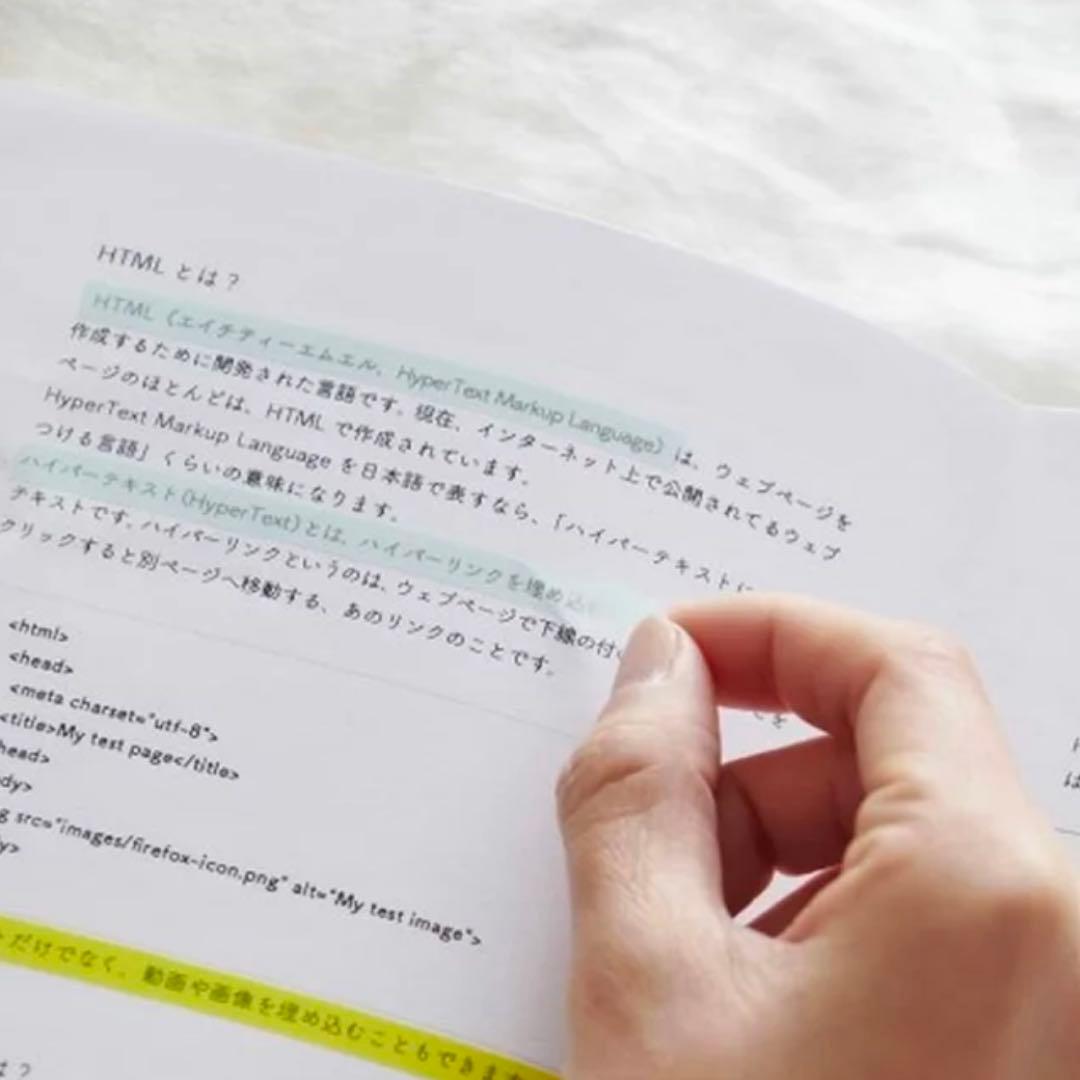 HTML とは？
HTML（エイチティーエムエル、HyperText Markup Language）は、ウェブページを
作成するために開発された言語です。現在、インターネット上で公開されてるウェブ
ページのほとんどは、HTML で作成されています。
HyperText Markup Language を日本語で表すなら、「ハイパーテキストに
つける言語」くらいの意味になります。
ハイパーテキスト(HyperText)とは、ハイパーリンクを埋め込
テキストです。ハイパーリンクというのは、ウェブページで下線の付
クリックすると別ページへ移動する、あのリンクのことです。
<html>
<head>
<meta charset="utf-8">
<title>My test page</title>
head>
dy>
g src="images/firefox-icon.png" alt="My test image">
y>
だけでなく、動画や画像を埋め込むこともできます
は？